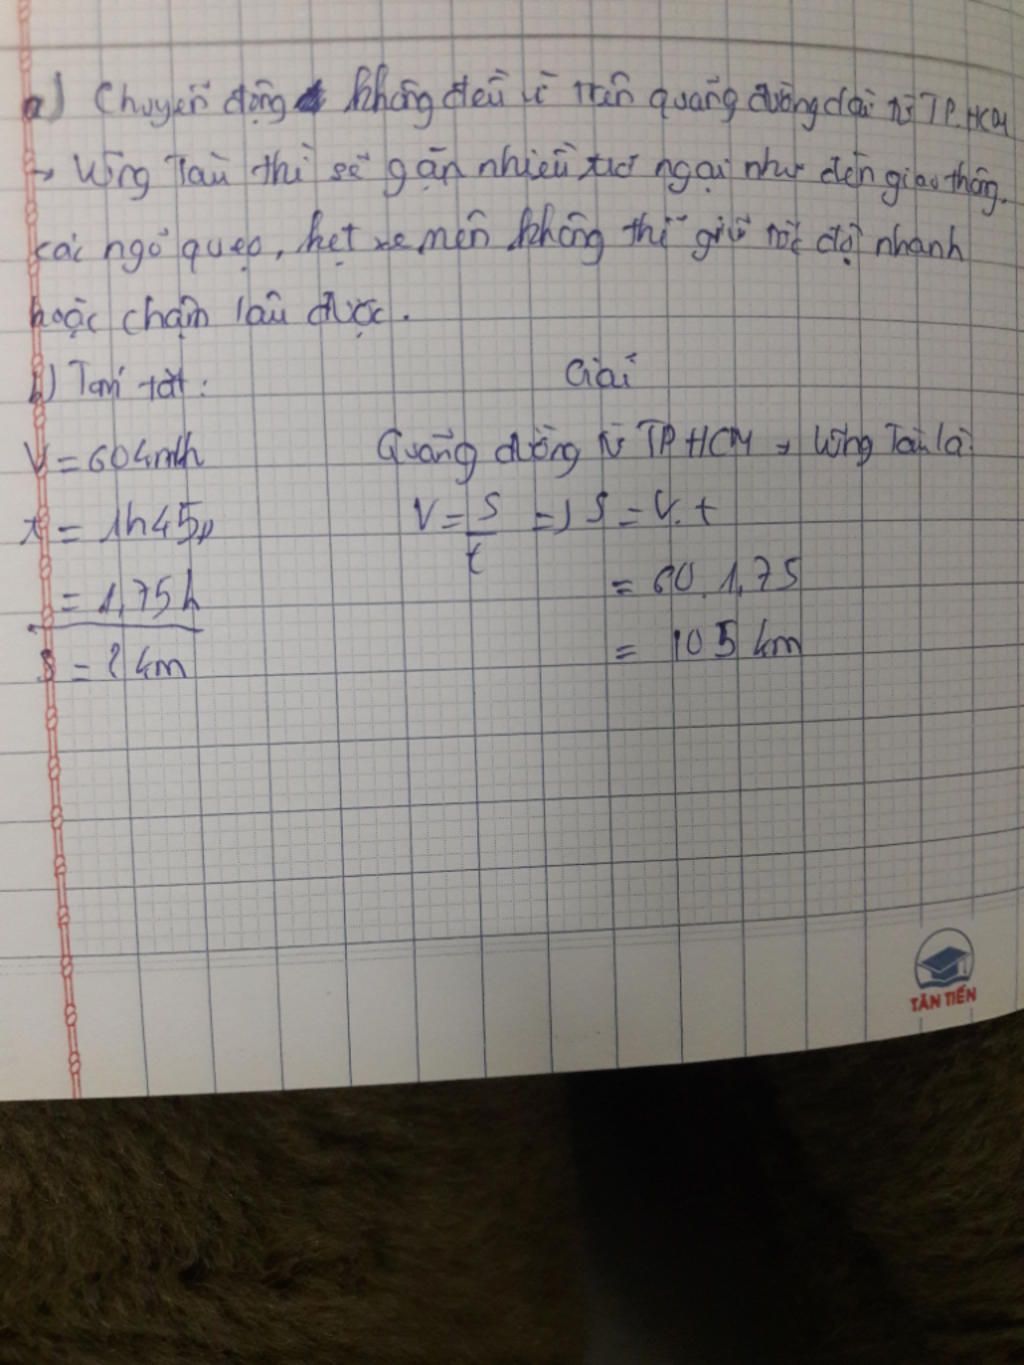 a) Chuyển động không đều vì trên quãng đường dài từ TP.HCM
→ Vũng Tàu thì sẽ gặp nhiều trở ngại như đèn giao thông,
các ngõ quẹo, kẹt xe nên không thể giữ tốc độ nhanh
hoặc chậm lâu được.
b) Tóm tắt:
Giải
V = 60km/h
Quãng đường từ TP.HCM → Vũng Tàu là:
t = 1h45p
V = S/t => S = V.t
= 1,75h
= 60.1,75
S = ? km
= 105 km
TÂN TIẾN